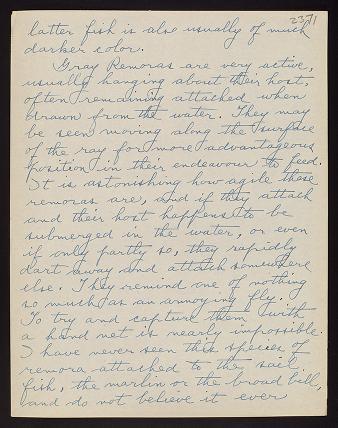 2371
latter fish is also usually of much
darker color.
Gray Remoras are very active,
usually hanging about their host,
often remaining attached when
drawn from the water. They may
be seen moving along the surface
of the ray for more advantageous
position in their endeavour to feed.
It is astonishing how agile these
remoras are, and if they attach
and their host happens to be
submerged in the water, or even
if only partly so, they rapidly
dart away and attach somewhere
else. They remind one of nothing
so much as an annoying fly.
To try and capture them with
a hand net is nearly impossible.
I have never seen this species of
remora attached to the sail
fish, the marlin or the broad bill,
and do not believe it ever